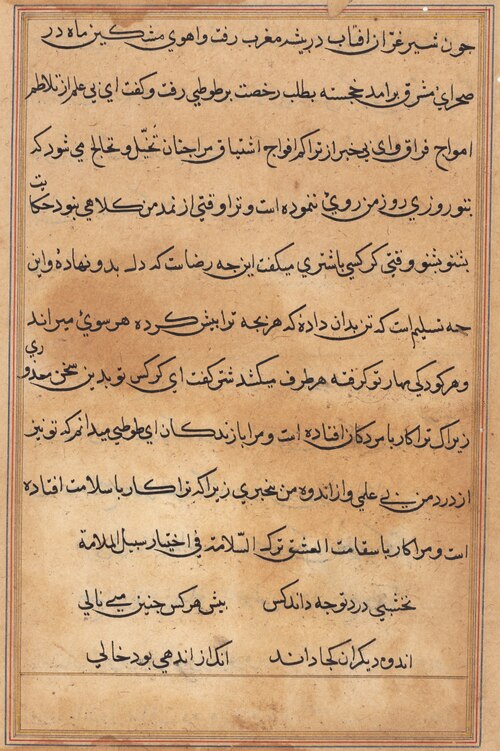 چون شیر غرّان افتاب در بیشه مغرب رفت و اهوی مشکین ماه در
صحرای مشرق برامد خجسته بطلب رخصت بر طوطی رفت و کفت ای بی علم از تلاطم
امواج فراق وای بی خبر از تراکم افواج اشتیاق مرا چنان تخیّل و تخالج می شود که
بتو روزی روز من روئ ننموده است و ترا وقتی از نمد من کلاهی نبود حکایت
بشنو بشنو وقتی کرکسی با شتری میکفت این چه رضاست که دل بدو نهادۀ واین
چه تسلیم است که تن بدان دادۀ که هر بچه ترا پیش کرده هر سوئ میراند
و هر کودکی مهار تو کرفته هر طرف میکشد شتر کفت ای کرکس تو بدین سخن معذوری
زیراک ترا کار با مردکان افتاده است و مرا با زندکان ای طوطی میدانم که تو نیز
از درد من بی علمی و از اندوه من بیخبری زیراکه ترا کار با سلامت افتاده
است و مرا کار با سقامت العشق ترک السّلامة فی اختیار سبیل الملامة
نخشبی درد تو چه داند کس بیش هر کس چنین همی نالی
اندوه دیکران کجا داند انک از اندهی بود خالی